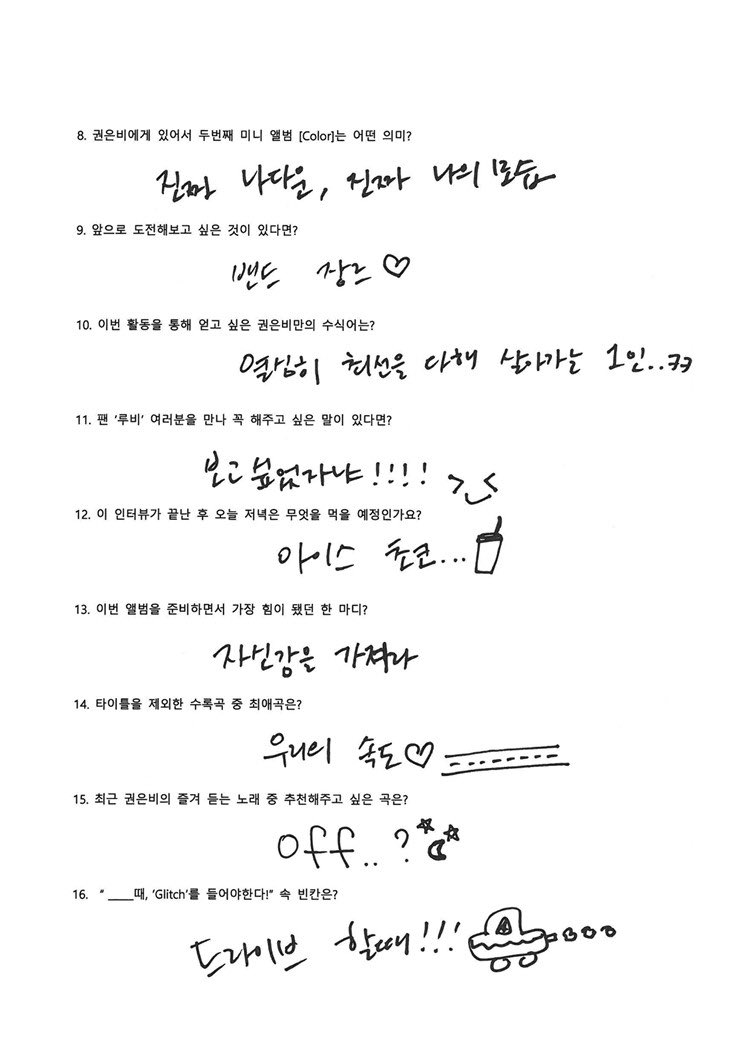 8. 권은비에게 있어서 두번째 미니 앨범 [Color]는 어떤 의미?
진짜 나다운, 진짜 나의 모습
9. 앞으로 도전해보고 싶은 것이 있다면?
밴드 장르♡
10. 이번 활동을 통해 얻고 싶은 권은비만의 수식어는?
열심히 최선을 다해 살아가는 1인..ㅋㅋ
11. 팬 ‘루비’ 여러분을 만나 꼭 해주고 싶은 말이 있다면?
보고 싶었자냐!!!! >_<
12. 이 인터뷰가 끝난 후 오늘 저녁은 무엇을 먹을 예정인가요?
아이스 초코...
13. 이번 앨범을 준비하면서 가장 힘이 됐던 한 마디?
자신감을 가져라
14. 타이틀을 제외한 수록곡 중 최애곡은?
우리의 속도♡
15. 최근 권은비의 즐겨 듣는 노래 중 추천해주고 싶은 곡은?
Off..?
16. “ ____때, ‘Glitch’를 들어야한다!” 속 빈칸은?
드라이브 할때!!!